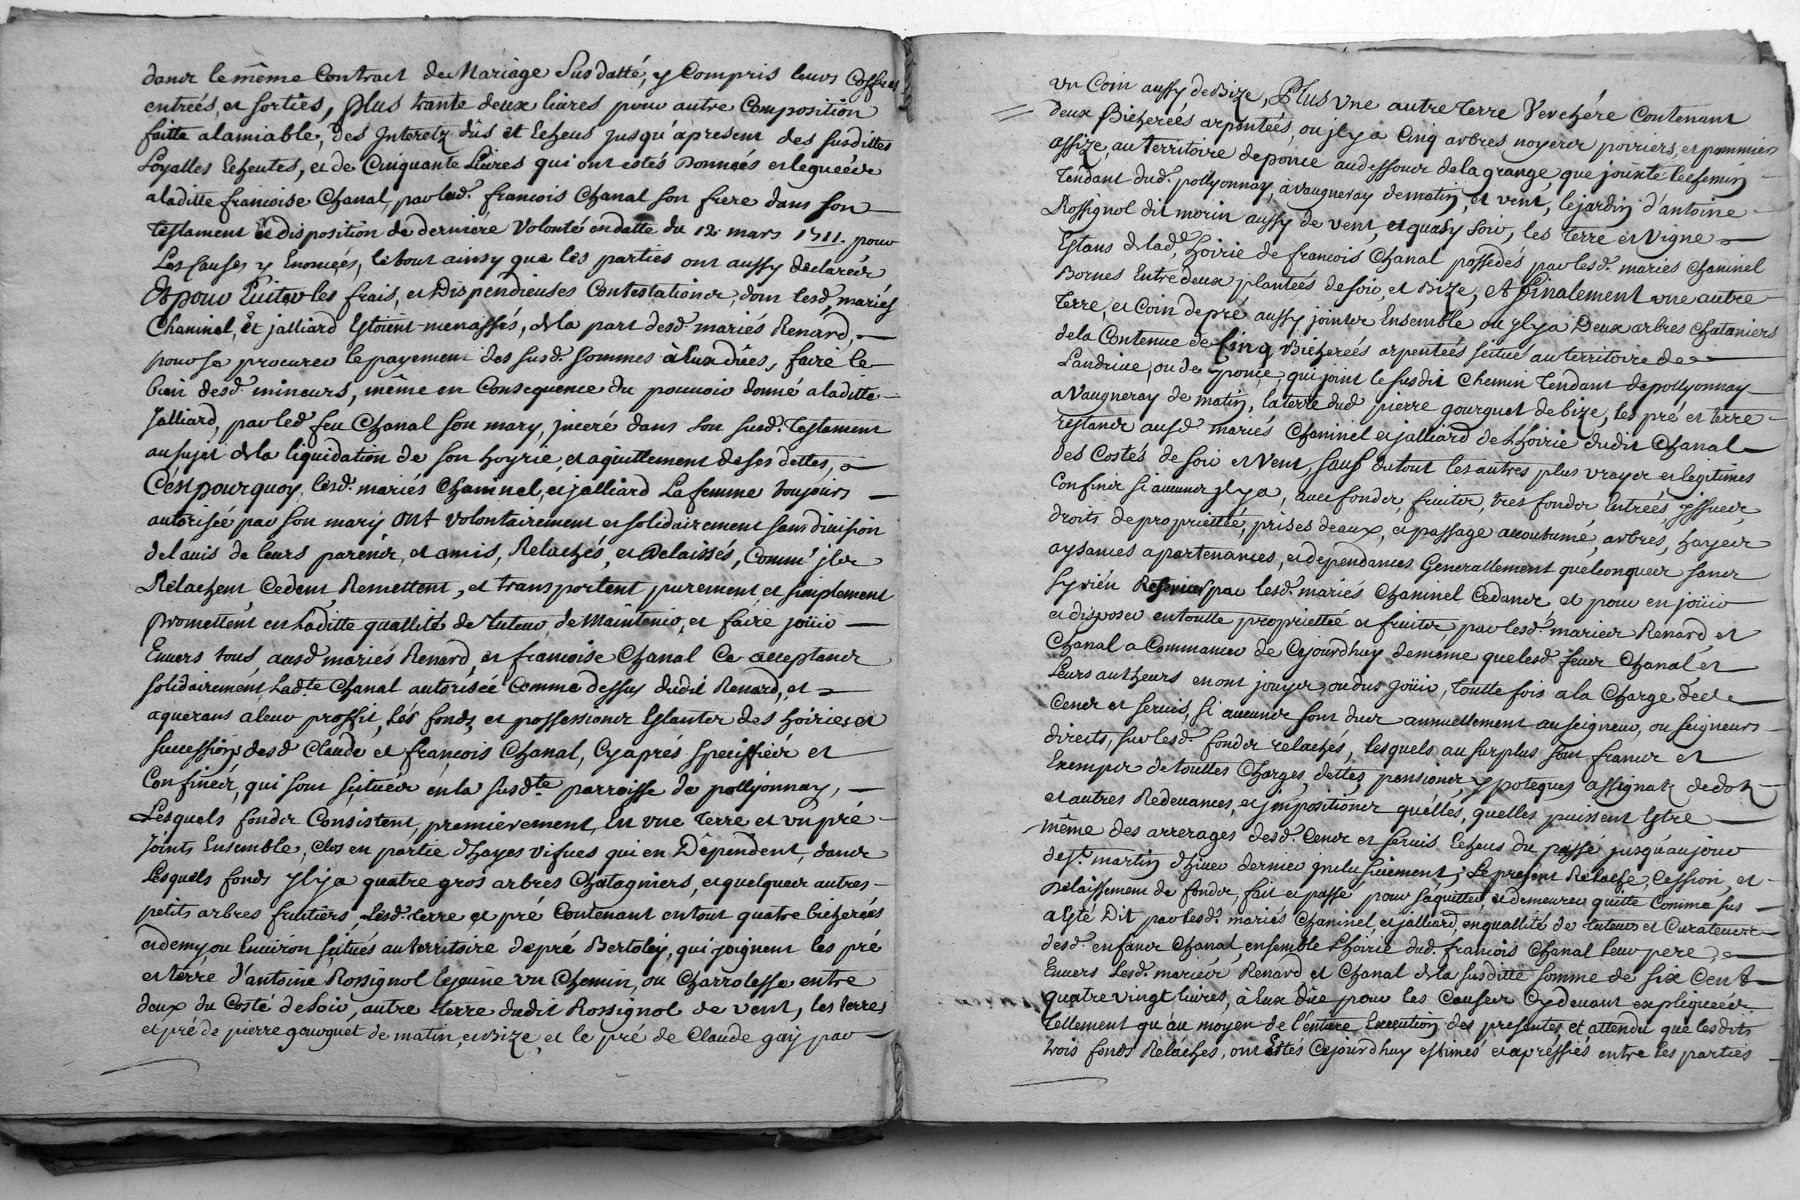 dans le même Contract de Mariage Susdatté, y Compris leurs Coffres
entreés, et sorties, plus trante deux livres pour autre Composition
faitte alamiable, des Interetz dûs et Echeus jusqu'apresent des susdittes
Loyalles Echeutes, et de Cinquante Livres qui ont estés Donneés et leguéés
aladitte francoise Chanal, par led. francois Chanal son frere dans son
testament et disposition de derniéré Volonté endatte du 12. mars 1711. pour
Les Causes y Enonceés, le tout ainsy que les parties ont aussy declaréés
Et pour Euiter les frais, et Dispendieuses Contestations, dont lesd. mariés
Chaninel, Et jalliard Estoient menassés, de la part desd. mariés Renard,
pour se procurer le payement des susd. sommes à Eux dûes, faire le
bien desd. mineurs, même en Consequence du pouuoir donné aladitte
Jalliard, par led. feu Chanal son mary, jnceré dans son susd. Testament
au sujet de la liquidation de son hoyrie, et aquittement de ses dettes,
C'est pourquoy, lesd. mariés Chaninel, et jalliard La femme toujours
autorisée par son mary ont volontairement et solidairement sans diuision
de l'auis de leurs parens, et amis, Relachés, et Delaissés, Comm' jls
Relachent, Cedent, Remettent, et transportent purement et simplement
promettent en Laditte quallité de tuteur, de Maintenir, et faire joüir
Enuers tous, ausd. mariés Renard, et francoise Chanal Ce acceptans
solidairement, Lad.te Chanal autorisée Comme dessus dudit Renard, et
aquerans a leur proffit, les fonds, et possessions Estantes des hoiries et
succession, desd. Claude et françois Chanal, Cy aprés speciffiés et
Confinés, qui sont situés en la susd.te parroisse de pollyonnay,
Lesquels fonds Consistent, premierement, En une Terre et un pré
joints Ensemble, clos en partie d'hayes vifues qui en Dépendent, dans
Lesquels fonds jl y a quatre gros arbres Chatagniers, et quelques autres
petits arbres fruitiers, Lesd. terre et pré Contenant en tout quatre bicheréés
et demy, ou Enuiron situés au territoire de pré Bertoley, qui joignent les pré
et terre d'antoine Rossignol lejeune un Chemin, ou Charrolesse entre
deux du Costé de soir, autre terre dudit Rossignol de vent, les terres
et pré de pierre gourguet de matin, et Bize, et le pré de Claude gaÿ par
un Coin aussy de Bize, Plus une autre terre Verchére Contenant
deux Bicheréés arpentées, ou jl y a Cinq arbres noyers poiriers, et pommiers
assize, au territoire de ponce au dessous de la grange que jointe le chemin
Tendant dud. pollyonnay, à vaugneray de matin, et vent, le jardin d'antoine
Rossignol dit morin aussy de vent, et quasy soir, les terre et vigne
Estans de lad.e hoirie de francois Chanal possedés par lesd. mariés Chaninel
Bornes Entre deux plantées de soir, et Bize, et finalement une autre
Terre, et Coin de pré aussy jointes Ensemble ou jl y a Deux arbres Chataniers
de la Contenue de Cinq Bicheréés arpentéés situé au territoire de
Landriue, ou de ponce, qui joint le susdit Chemin Tendant de pollyonnay
a Vaugneray de matin, la terre dud. pierre gourguet de bize, les pré et terre
restans ausd. mariés Chaninel et jalliard de l'hoirie dudit Chanal
des Costés de soir et Vent, sauf du tout les autres plus vrayes et legitimes
Confins si aucuns jl y a, auec fonds, fruits, tres fonds, Entreés, jssues,
droits de propriettée, prises deaux, et passage accoutumé, arbres, hayes
aysances apartenances, et dependances Generallement quelconques sans
sy rien Reseruer par lesd. mariés Chaninel Cedans et pour en joüir
et disposer en toutte propriettée et fruits, par lesd. maries Renard, et
Chanal a Commancer de Cejourdhuy de meme que lesd. feux Chanal, et
Leurs autheurs en ont jouyes, ou dus joüir, toutte fois a la Charge des
Cens et seruis, si aucuns sont dues annuellement au seigneur, ou seigneurs
directs, sur lesd. fonds relachés, lesquels au surplus sont francs et
Exempts de touttes Charges, dettes, pensions, ypoteques assignatz de dot
et autres Redeuances, et jmpositions quélles, quelles puissent Estre
même des arrerages desd. Cens et seruis Echeus du passé jusqu'aujour
de s.t martin d'hiuer dernier jnclusiuement, Le present Relache, Cession, et
Delaissement de fonds, fait et passé pour s'aquitter et demeurer quitte Comme sus
a Esté Dit par lesd. mariés Chaninel, et jalliard, en quallité de tuteurs et Curateurs
desd. enfans Chanal, ensemble l'hoirie dud. françois Chanal leur pere,
Enuers Lesd. mariés Renard et Chanal de la susditte somme de six Cent
quatre vingt liures, à Eux dûe pour les Causes Cy deuant expliqueéés
Tellement qu'au moyen de l'entiere Execution des presentes, et attendu que lesdits
trois fonds Relachés, ont Estés Cejourdhuy estimés et apressiés entre les parties